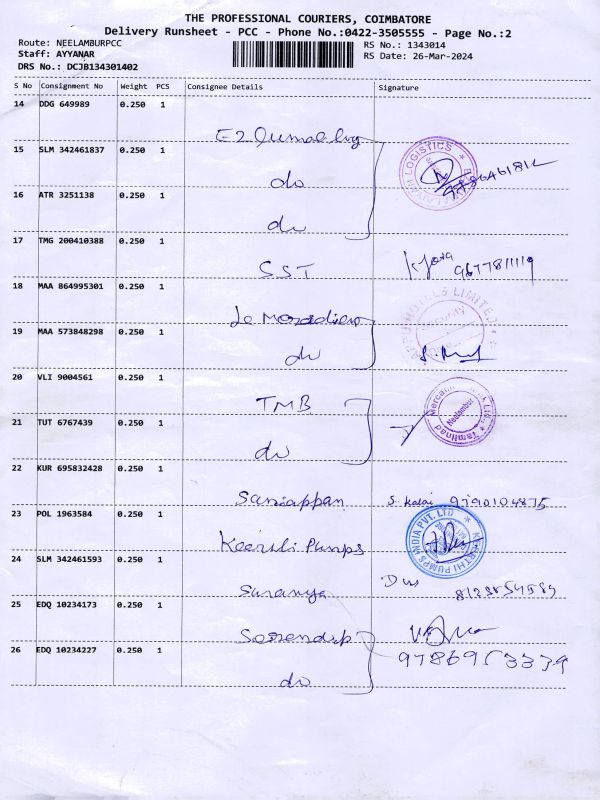 THE PROFESSIONAL COURIERS, COIMBATORE
Delivery Runsheet - PCC - Phone No.:0422-3505555 - Page No.:2
Route: NEELAMBURPCC
RS No.: 1343014
Staff: AYYANAR
RS Date: 26-Mar-2024
DRS No.: DCJB134301402
S No Consignment No Weight PCS Consignee Details Signature
14 DDG 649989 0.250 1
15 SLM 342461837 0.250 1
do
LOGISTICS
16 ATR 3251138 0.250 1
do
17 TMG 200410388 0.250 1
SST
9677811119
18 MAA 864995301 0.250 1
Le Meridien
HOTELS LIMITED
19 MAA 573848298 0.250 1
do
20 VLI 9004561 0.250 1
TMB
Tamilnad Mercantile Bank Ltd.
Neelambur
21 TUT 6767439 0.250 1
do
22 KUR 695832428 0.250 1
Saniappan S. Kalai 9790104875
23 POL 1963584 0.250 1
Keerthi Pumps
KEERTHI PUMPS INDIA PVT. LTD
24 SLM 342461593 0.250 1
Saranya
25 EDQ 10234173 0.250 1
Serendip
26 EDQ 10234227 0.250 1
9786953339
do